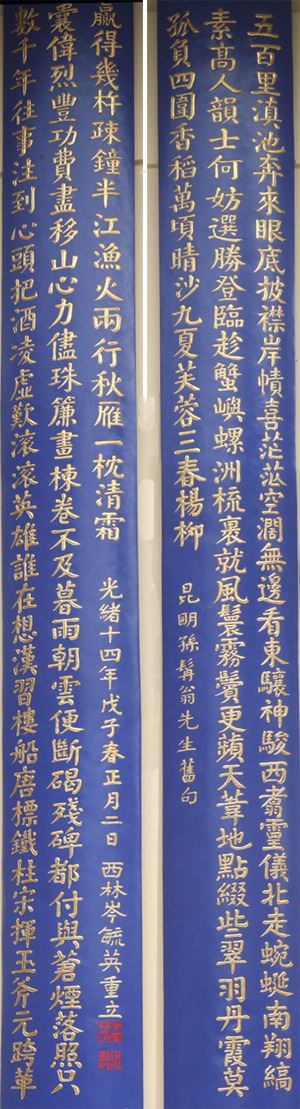 五百里滇池奔來眼底披襟岸幘喜茫茫空濶無邊看東驤神駿西翥靈儀北走蜿蜒南翔縞
素高人韻士何妨選勝登臨趁蟹嶼螺洲梳裹就風鬟霧鬢更蘋天葦地點綴些翠羽丹霞莫
孤負四圍香稻萬頃晴沙九夏芙蓉三春楊柳
昆明孫髯翁先生舊句
數千年往事注到心頭把酒凌虛歎滚滚英雄誰在想漢習樓船唐標鐵柱宋揮玉斧元跨革
囊偉烈豐功費盡移山心力儘珠簾畫棟卷不及暮雨朝雲便斷碣殘碑都付與蒼煙落照只
贏得幾杵疎鐘半江漁火兩行秋雁一枕清霜
光緒十四年戊子春正月二日 西林岑毓英重立